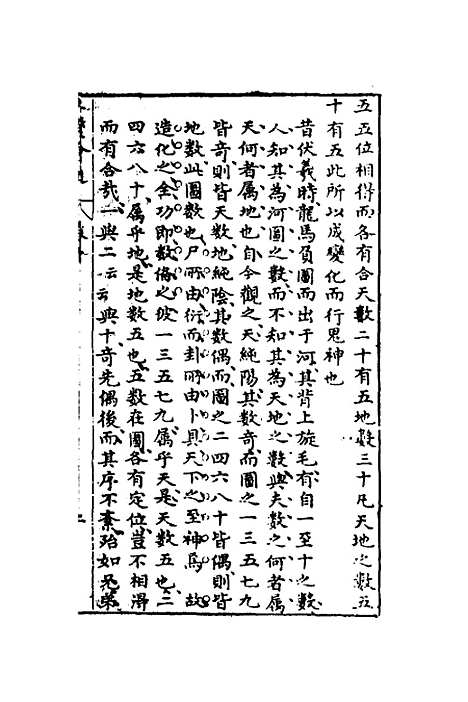 五五位相得而各有合天數二十有五地數三十凡天地之數五
十有五此所以成變化而行鬼神也
昔伏羲時龍馬負圖而出于河其背上旋毛有自一至十之數
人知其為河圖之數而不知其為天地之數與夫數之何者屬
天何者屬地也自今觀之天純陽其數奇而圖之一三五七九
皆奇則皆天數地純陰其數偶而圖之二四六八十皆偶則皆
地數此圖數也尸所由衍而卦所由卜具天下之至神焉故
造化之全功即數偹之彼一三五七九屬乎天是天數五也二
四六八十屬乎地是地數五也五數在圖各有定位豈不相得
而有合哉一與二云云與十奇先偶後而其序不紊殆如兄弟